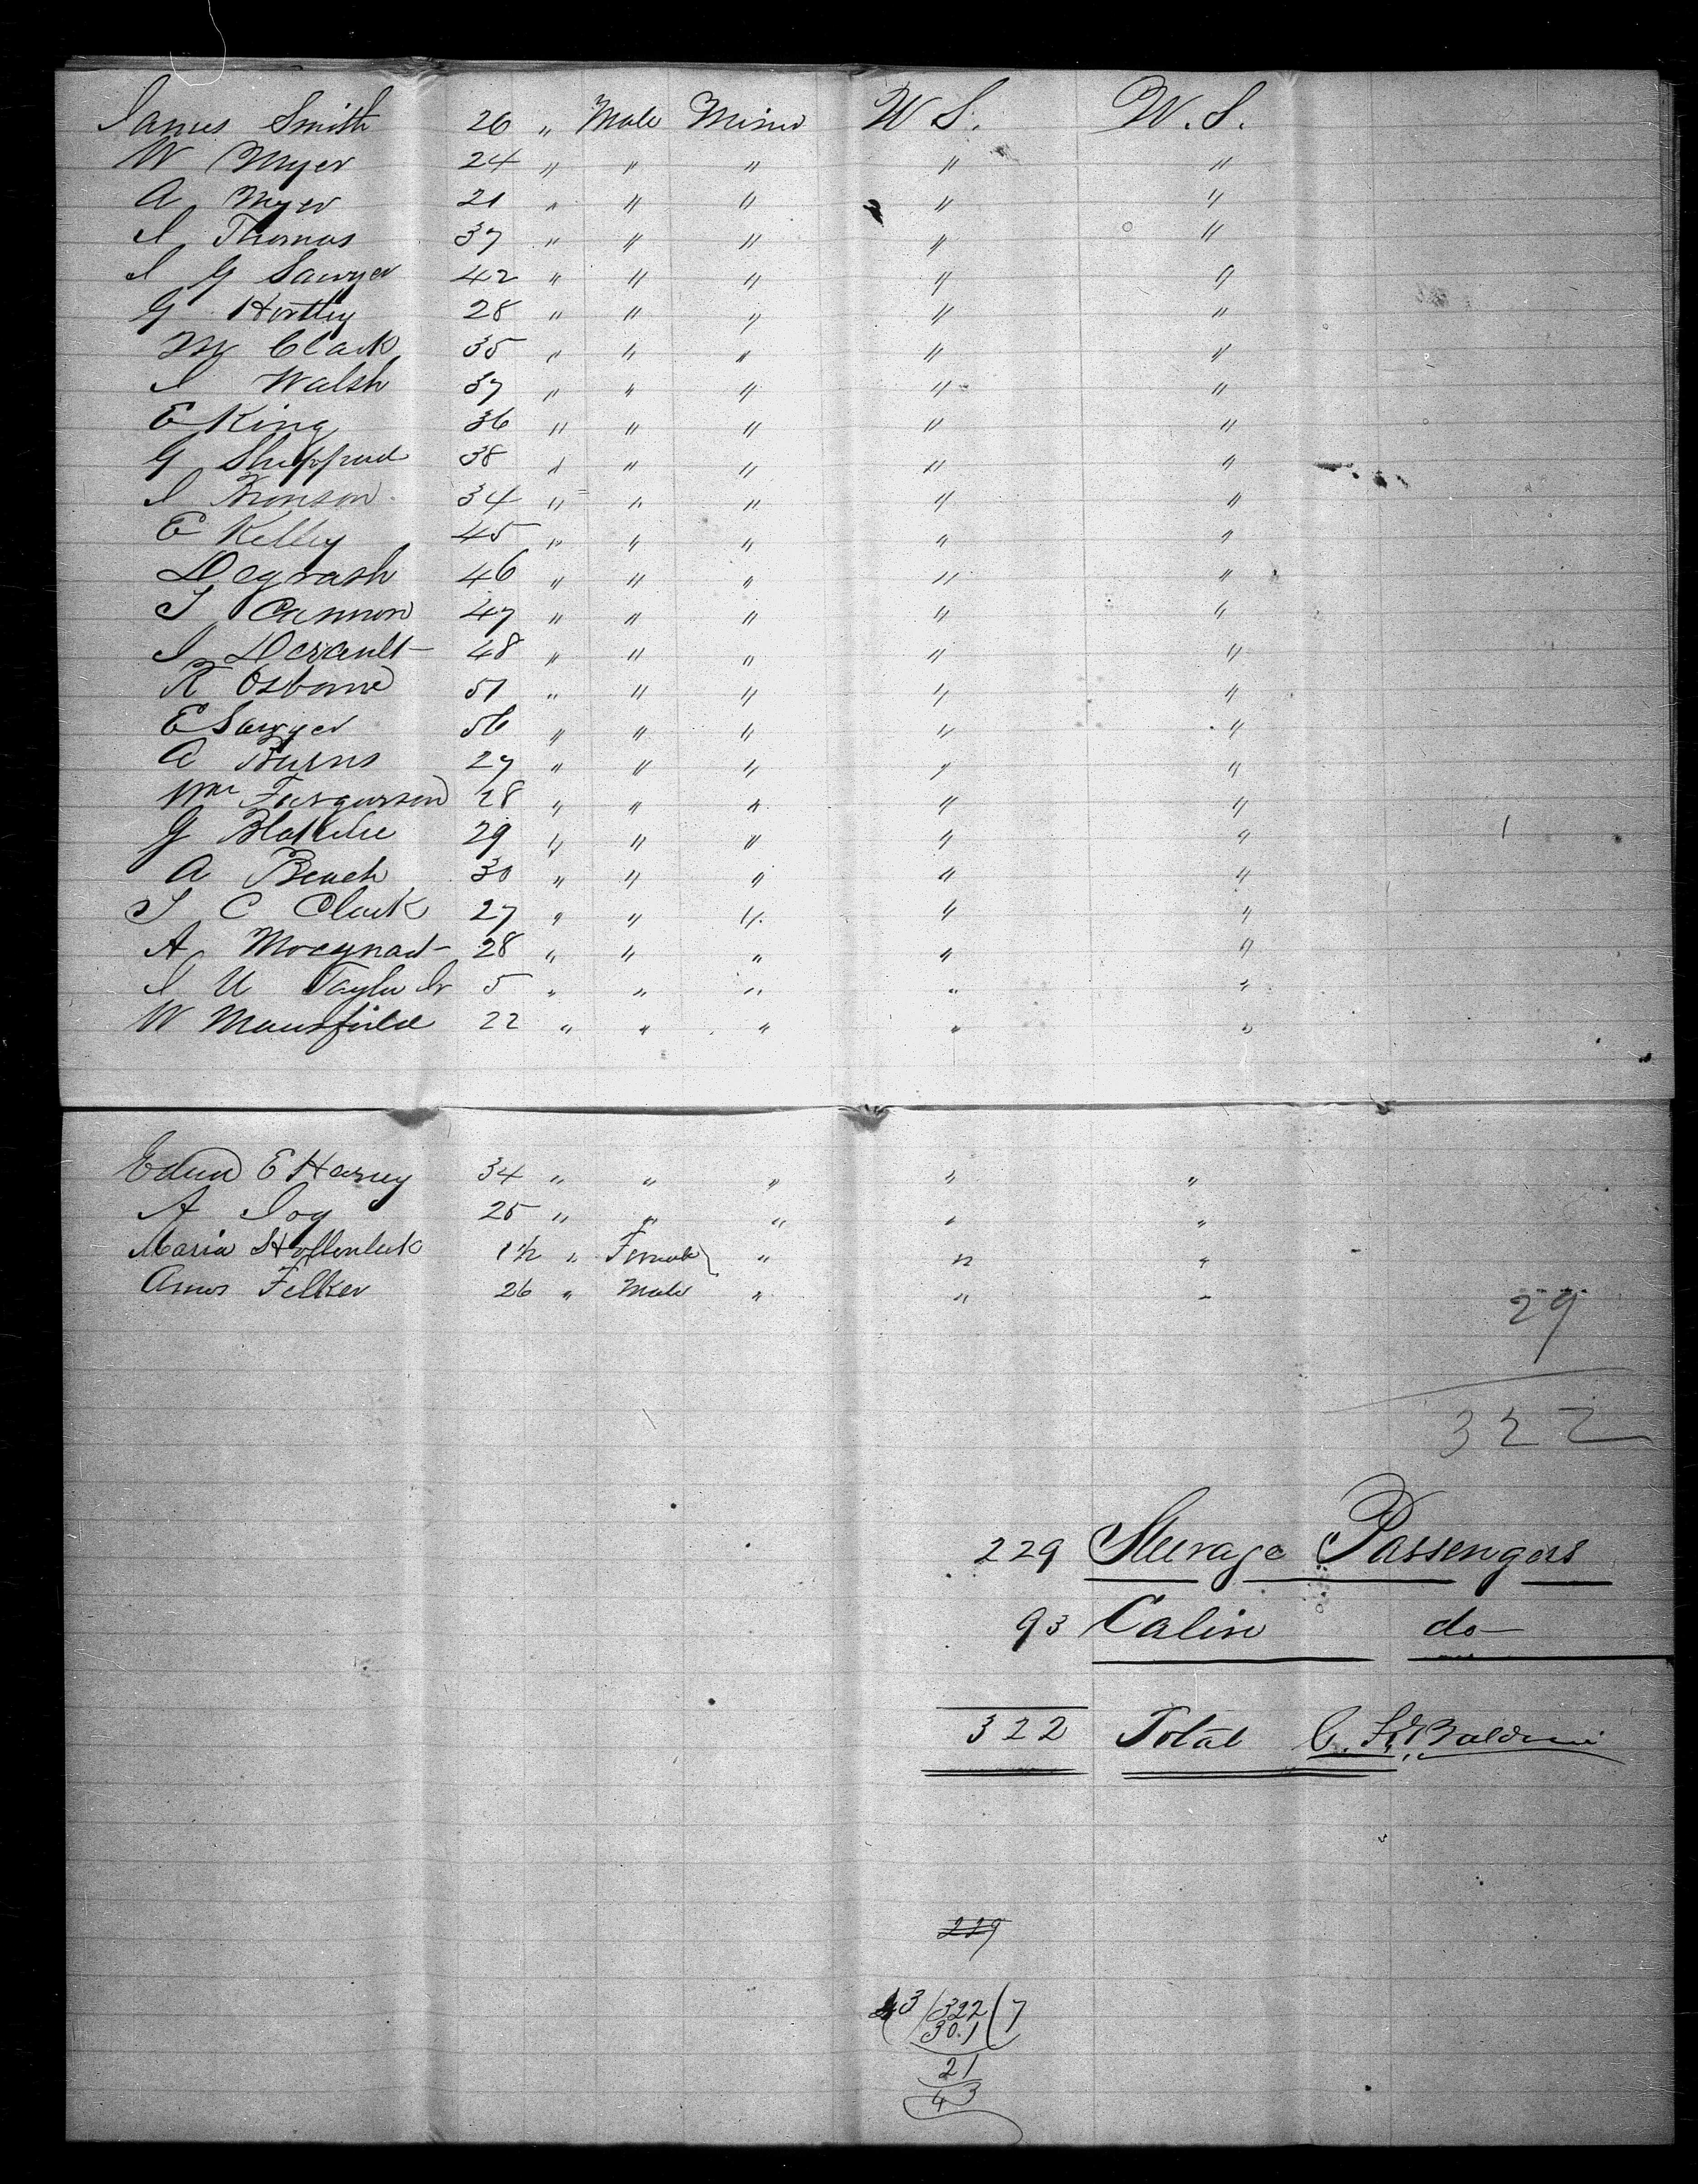 James Smith 26 " Male Miner U S. U. S.
W Myer 24 " " " " "
A Myer 21 " " " " "
J Thomas 37 " " " " "
J G Sawyer 42 " " " " "
G Hortley 28 " " " " "
My Clark 35 " " " " "
J Walsh 37 " " " " "
E King 36 " " " " "
G Sheppard 38 " " " " "
J Bronson 34 " " " " "
E Kelley 45 " " " " "
Degrash 46 " " " " "
J Cannon 47 " " " " "
J Derault 48 " " " " "
R Osborne 51 " " " " "
E Sawyer 56 " " " " "
A Burns 27 " " " " "
Wm Furgurson 28 " " " " "
G 29 " " " " "
A Beach 30 " " " " "
J C Clark 27 " " " " "
A 28 " " " " "
J U Taylor Jr 5 " " " " "
W Mansfield 22 " " " " "
Edwd E Harvey 34 " " " " "
A Joy 25 " " " " "
Maria 1½ " Female " " "
Amos Felker 26 " Male " " "
29
322
229 Steerage Passengers
93 Cabin do
322 Total C. Baldwin
229
43 / 322 ( 7
301
21
43